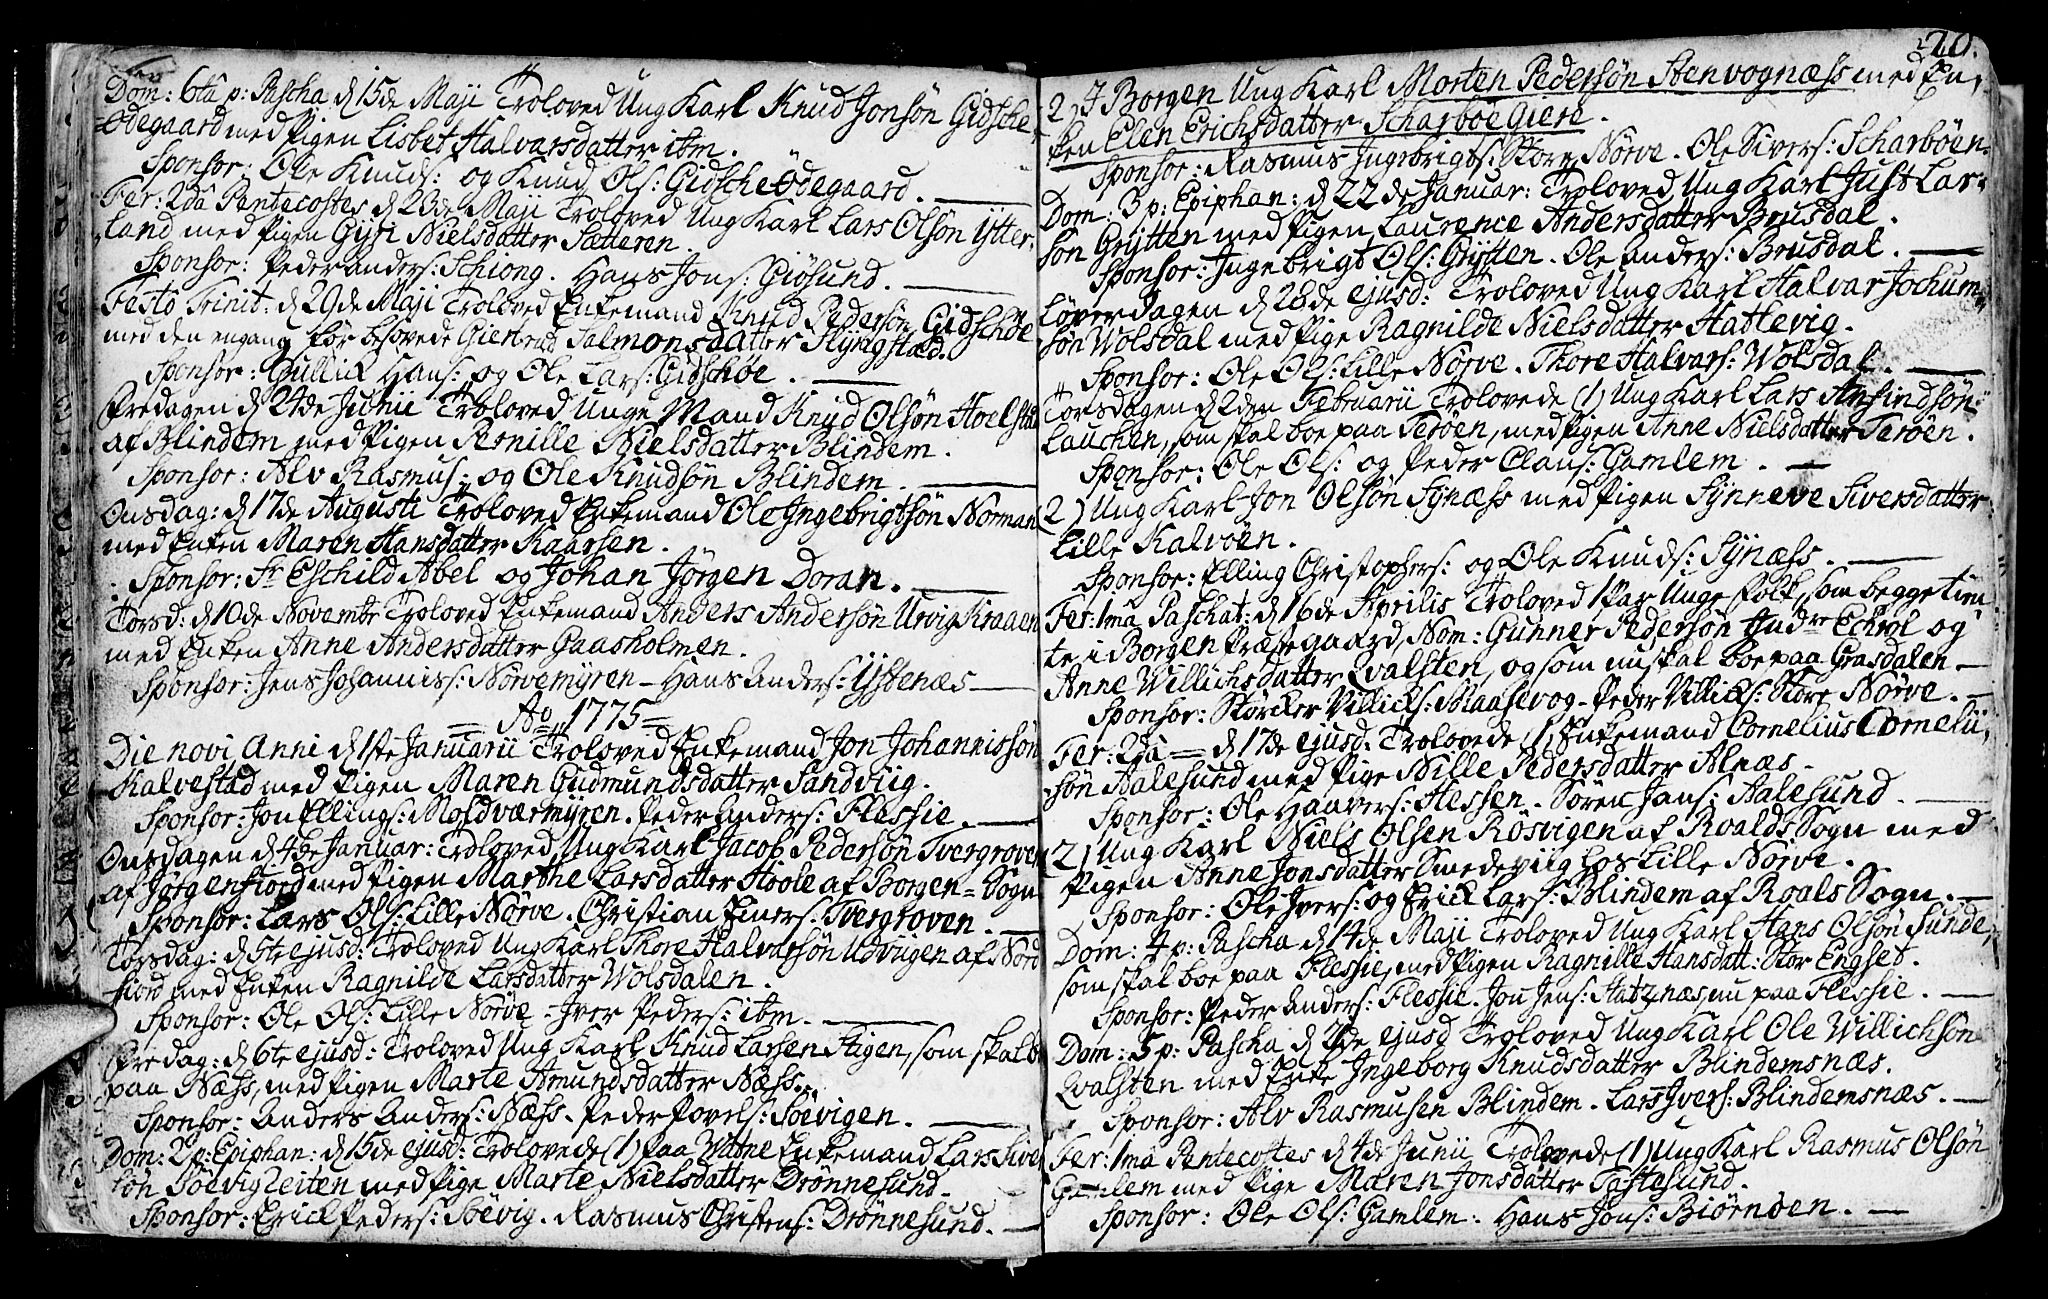 Dom: 6ta p: Pascha d 15de Maji Troloved Ung Karl Knud Jonsøn Gidsche
Ødegaard med Pigen Lisbet Halvarsdatter ibm.
Sponsor: Ole Knuds: og Knud Ols: Gidsche Ødegaard.
Fer: 2da Pentecostes d 23de Maji Troloved Ung Karl Lars Olsøn Ytter-
land med Pigen Gyri Nielsdatter Sætteren.
Sponsor: Peder Anders: Schiong. Hans Jons: Giøsund.
Festo Trinit: d 29de Maji Troloved Enkemand Knud Pedersøn Gidschøe
med den engang før besovede Giertrud Salmonsdatter Flyragstæd.
Sponsor: Gullick Hans: og Ole Lars: Gidschøe.
Fredagen d 24de Junii Troloved Unge Mand Knud Olsøn Hoelstad
af Blindem med Pigen Pernille Nielsdatter Blindem.
Sponsor: Alv Rasmus: og Ole Knudsøn Blindem.
Onsdag: d 17de Augusti Troloved Enkemand Ole Ingebrigtsøn Norman
med Enken Maren Hansdatter Kaarsen.
Sponsor: Sr Eschild Abel og Johan Jørgen Doran.
Torsd: d 10de Novembr Troloved Enkemand Anders Andersøn Urvig Kraaen
med Enken Anne Andersdatter Gaasholmen.
Sponsor: Jens Johannis: Nørvemyren - Hans Anders: Ystenæs
Ao 1775
Die novi Anni d 1ste Januarii Troloved Enkemand Jon Johannissøn
Kalvestad med Pigen Maren Gudmundsdatter Sandviig.
Sponsor: Jon Ellings: Moldværmyren. Peder Anders: Flessie.
Onsdagen d 4de Januar: Troloved Ung Karl Jacob Pedersøn Tvergroven
af Jørgenfiord med Pigen Marthe Larsdatter Hoole af Borgen-Sogn
Sponsor: Lars Ols: Lille Nørve. Christian Einers: Tvergroven.
Torsdag: d 5te ejusd: Troloved Ung Karl Thore Halvarsøn Udvigen af Nord
fiord med Enken Ragnilde Larsdatter Wolsdalen.
Sponsor: Ole Ols: Lille Nørve - Iver Peders: ibm.
Fredag: d 6te ejusd: Troloved Ung Karl Knud Larsen Stigen, som skal boe
paa Næss, med Pigen Marte Amundsdatter Næss.
Sponsor: Anders Anders: Næss. Peder Povels: Søevigen.
Dom: 2 p: Epiphan: d 15de ejusd: Trolovede (1) paa Vatne Enkemand Lars Siver
søn Søevigleiten med Pige Marte Nielsdatter Drønnesund.
Sponsor: Erick Peders: Søevig. Rasmus Christens: Drønnesund.
20.
2) I Borgen Ung Karl Morten Pedersøn Stenvognæss med En-
ken Elen Erichsdatter Scharbøe Giere.
Sponsor: Rasmus Ingebrigts: Store Nørve. Ole Sivers: Scharbøen.
Dom: 3 p: Epiphan: d 22de Januar: Troloved Ung Karl Just Lar-
søn Grytten med Pigen Laurence Andersdatter Brusdal.
Sponsor: Ingebrigt Ols: Grytten. Ole Anders: Brusdal.
Løverdagen d 28de ejusd: Troloved Ung Karl Halvar Jochum-
søn Wolsdal med Pige Ragnilde Nielsdatter Hatlevig.
Sponsor: Ole Ols: Lille Nørve. Thore Halvars: Wolsdal.
Torsdagen d 2den Februarii Trolovede (1) Ung Karl Lars Anfindsøn
Lauchen, som skal boe paa Terøen, med Pigen Anne Nielsdatter Terøen.
Sponsor: Ole Ols: og Peder Claus: Gamlem.
2) Ung Karl Jon Olsøn Synæss med Pigen Synneve Siversdatter
Lille Kalvøen.
Sponsor: Elling Christophers: og Ole Knuds: Synæss.
Fer: 1ma Paschat: d 16de Aprilis Troloved 1 Par Unge folk, som begge tien
te i Borgen Præstegaard, Nom: Gunner Pedersøn Echrol og
Anne Willichsdatter Qvalsten, og som nu skal boe paa Grasdalen
Sponsor: Størcker Villicks: Maasevog - Peder Villicks: Store Nørve.
Fer: 2da d 17de ejusd: Trolovede (1) Enkemand Cornelius Corneliu
søn Aalesund med Pige Nille Pedersdatter Alnæs.
Sponsor: Ole Haavers: Hessen. Søren Jans: Aalesund.
2) Ung Karl Niels Olsen Røsvigen af Roalds Sogn med
Pigen Anne Jonsdatter Smedeviig hos Lille Nørve.
Sponsor: Ole Ivers: og Erick Lars: Blindem af Roals Sogn.
Dom: 4 p: Pascha d 14de Maji Troloved Ung Karl Hans Olsøn Sunde,
som skal boe paa Flessie, med Pigen Ragnille Hansdatt: Stor Engset.
Sponsor: Peder Anders: Flessie. Jon Jens: Hatznæs, nu paa Flessie.
Dom: 5 p: Pascha d ejusd Troloved Ung Karl Ole Willichsøn
Qvalsten med Enke Ingeborg Knudsdatter Blindemsnæs.
Sponsor: Alv Rasmusen Blindem. Lars Ivers: Blindemsnæs.
Fer: 1ma Pentecostes d 4de Junii Trolovede (1) Ung Karl Rasmus Olsøn
Gamlem med Pige Maren Jonsdatter Tostesund.
Sponsor: Ole Ols: Gamlem. Hans Jons: Biørnøen.